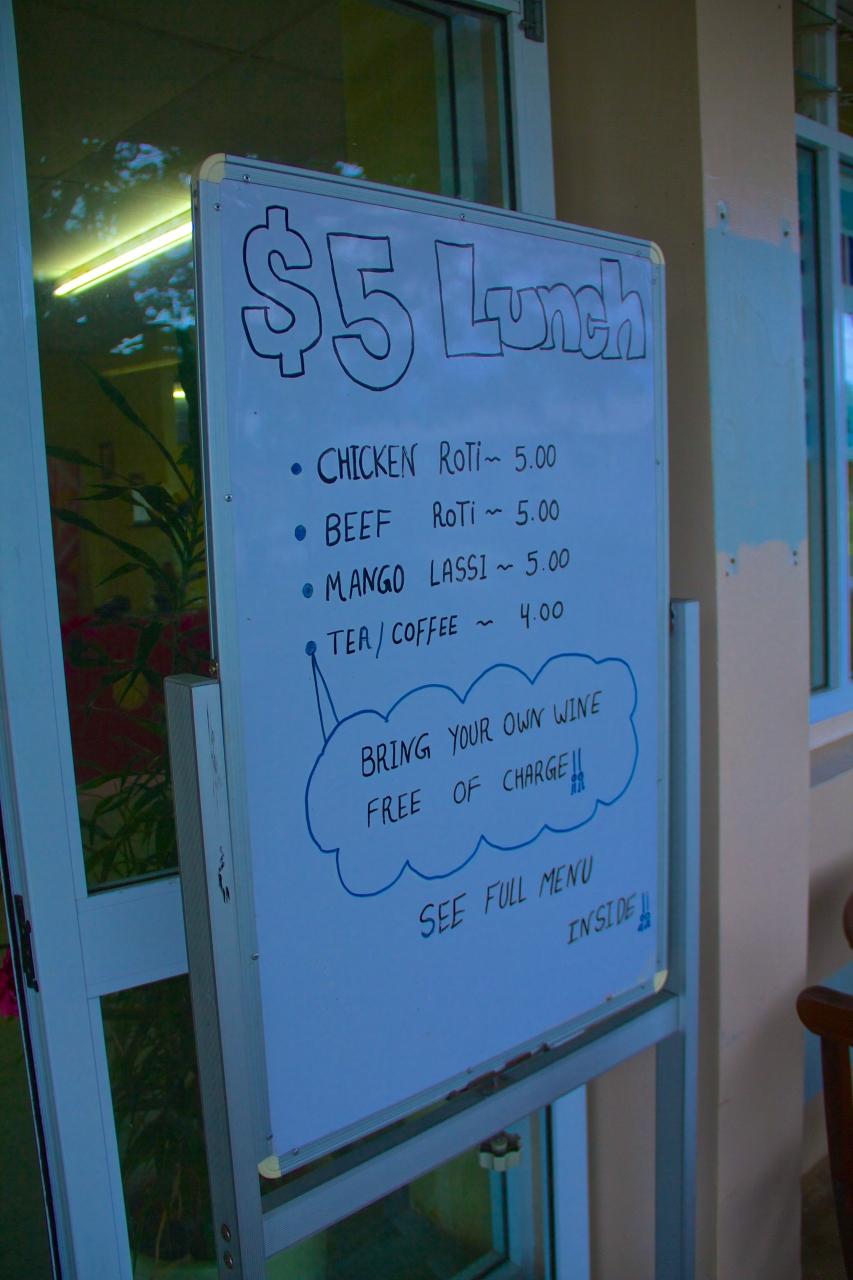 $5 Lunch
• CHICKEN ROTi ~ 5.00
• BEEF ROTi ~ 5.00
• MANGO LASSI ~ 5.00
• TEA/COFFEE ~ 4.00
BRING YOUR OWN WINE
FREE OF CHARGE!!
SEE FULL MENU
INSIDE!!